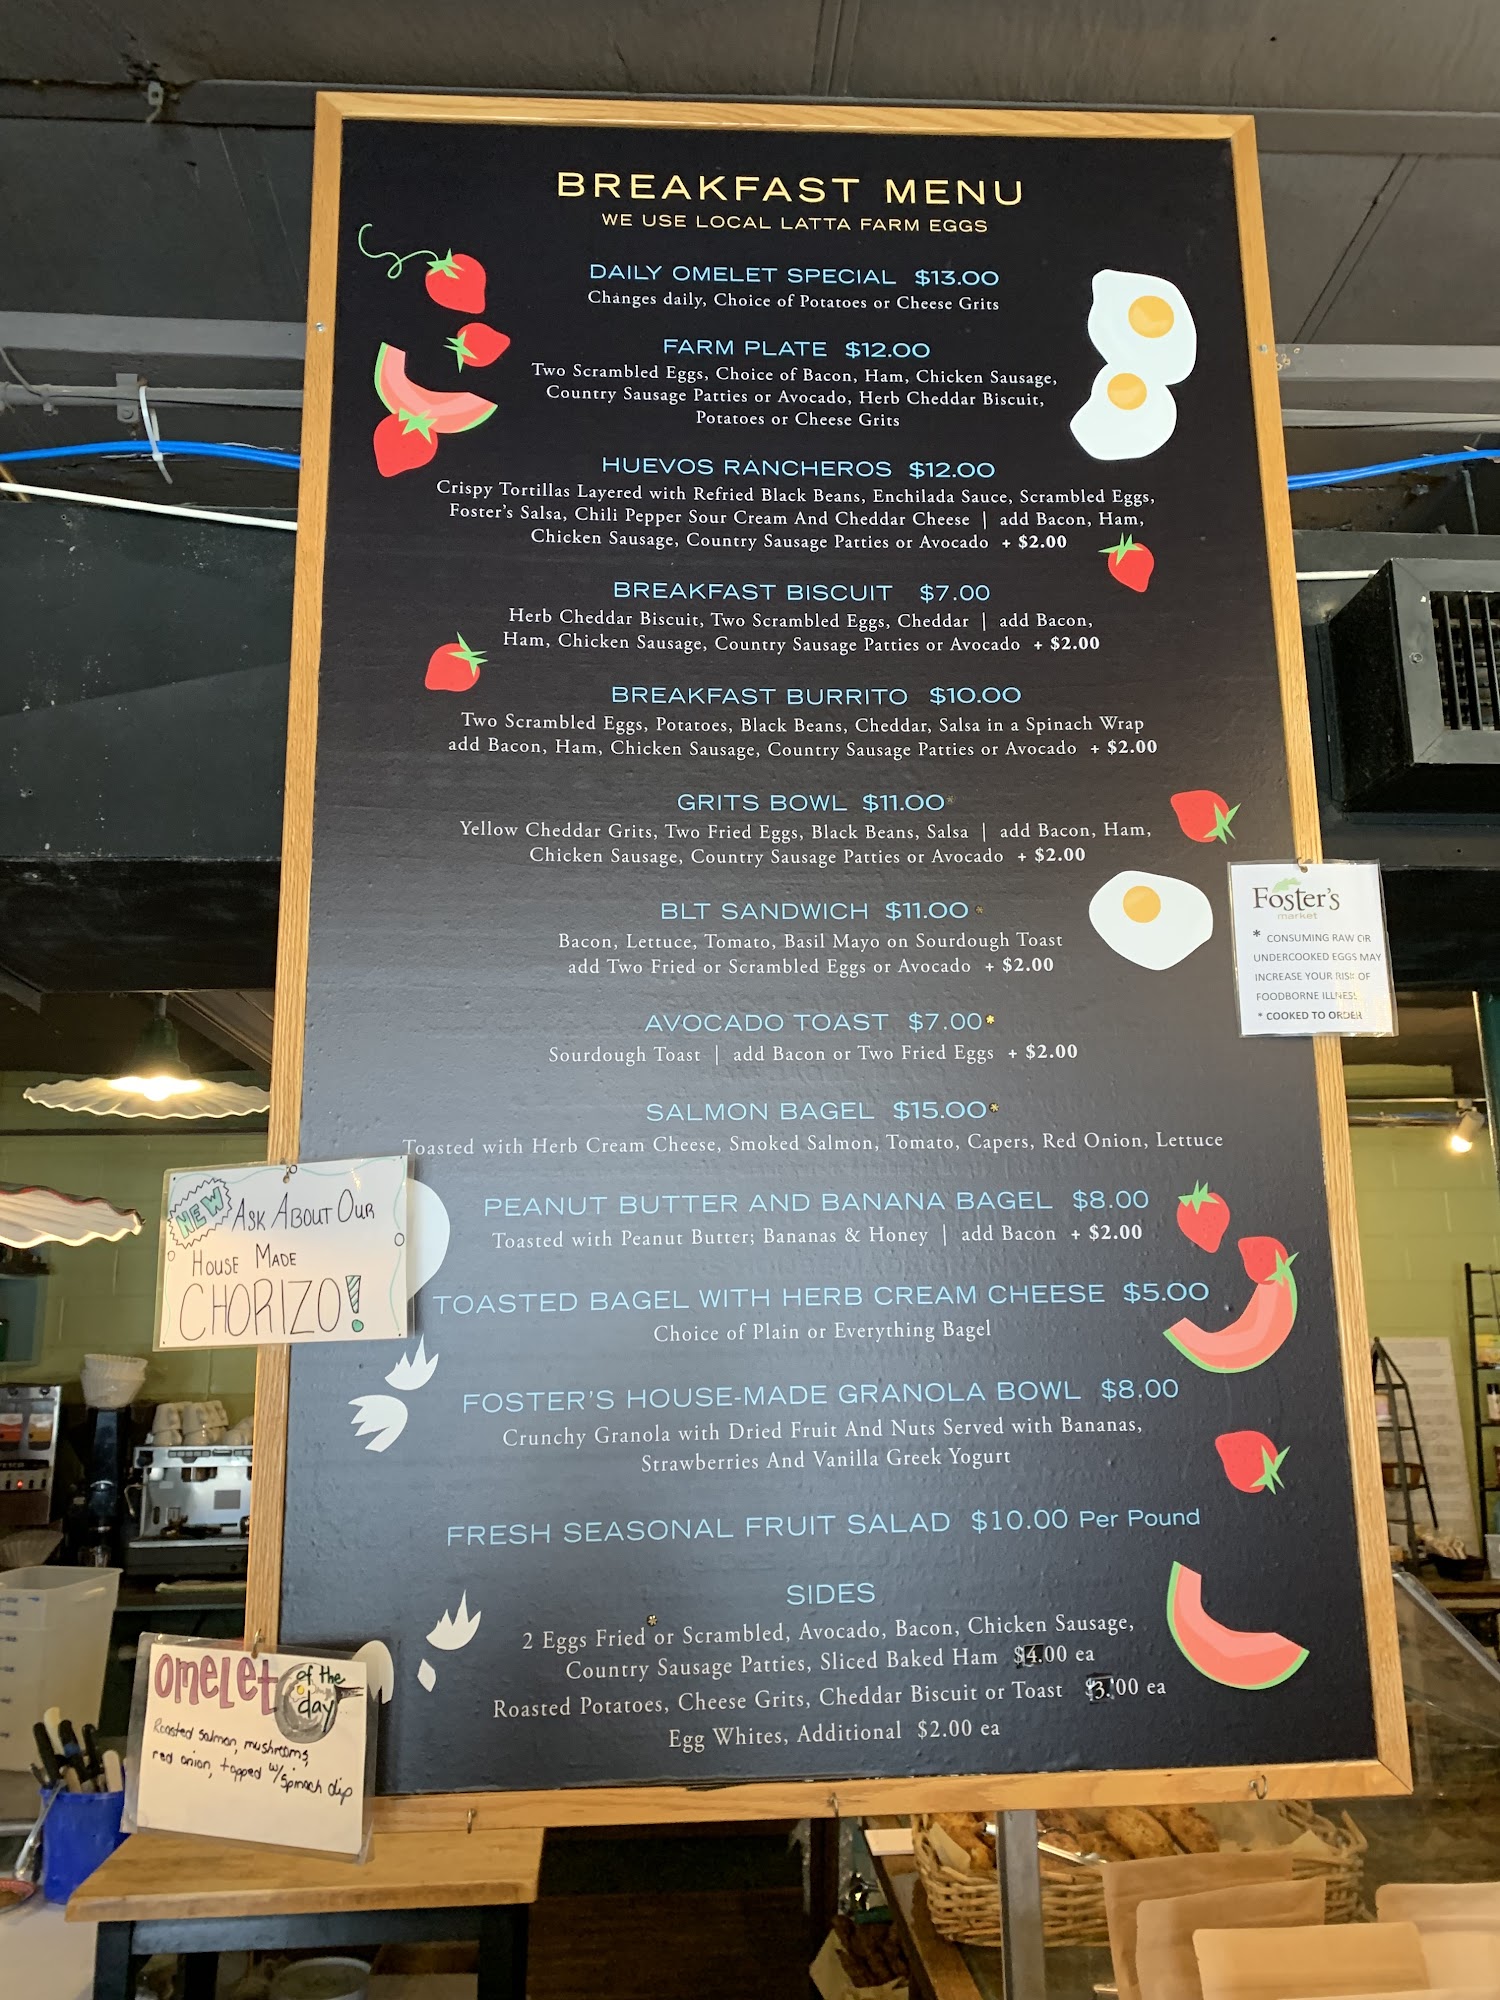 BREAKFAST MENU
WE USE LOCAL LATTA FARM EGGS
DAILY OMELET SPECIAL $13.00
Changes daily, Choice of Potatoes or Cheese Grits
FARM PLATE $12.00
Two Scrambled Eggs, Choice of Bacon, Ham, Chicken Sausage,
Country Sausage Patties or Avocado, Herb Cheddar Biscuit,
Potatoes or Cheese Grits
HUEVOS RANCHEROS $12.00
Crispy Tortillas Layered with Refried Black Beans, Enchilada Sauce, Scrambled Eggs,
Foster's Salsa, Chili Pepper Sour Cream And Cheddar Cheese | add Bacon, Ham,
Chicken Sausage, Country Sausage Patties or Avocado + $2.00
BREAKFAST BISCUIT $7.00
Herb Cheddar Biscuit, Two Scrambled Eggs, Cheddar | add Bacon,
Ham, Chicken Sausage, Country Sausage Patties or Avocado + $2.00
BREAKFAST BURRITO $10.00
Two Scrambled Eggs, Potatoes, Black Beans, Cheddar, Salsa in a Spinach Wrap
add Bacon, Ham, Chicken Sausage, Country Sausage Patties or Avocado + $2.00
GRITS BOWL $11.00*
Yellow Cheddar Grits, Two Fried Eggs, Black Beans, Salsa | add Bacon, Ham,
Chicken Sausage, Country Sausage Patties or Avocado + $2.00
BLT SANDWICH $11.00*
Bacon, Lettuce, Tomato, Basil Mayo on Sourdough Toast
add Two Fried or Scrambled Eggs or Avocado + $2.00
AVOCADO TOAST $7.00*
Sourdough Toast | add Bacon or Two Fried Eggs + $2.00
SALMON BAGEL $15.00*
Toasted with Herb Cream Cheese, Smoked Salmon, Tomato, Capers, Red Onion, Lettuce
PEANUT BUTTER AND BANANA BAGEL $8.00
Toasted with Peanut Butter; Bananas & Honey | add Bacon + $2.00
TOASTED BAGEL WITH HERB CREAM CHEESE $5.00
Choice of Plain or Everything Bagel
FOSTER'S HOUSE-MADE GRANOLA BOWL $8.00
Crunchy Granola with Dried Fruit And Nuts Served with Bananas,
Strawberries And Vanilla Greek Yogurt
FRESH SEASONAL FRUIT SALAD $10.00 Per Pound
SIDES
2 Eggs Fried* or Scrambled, Avocado, Bacon, Chicken Sausage,
Country Sausage Patties, Sliced Baked Ham $4.00 ea
Roasted Potatoes, Cheese Grits, Cheddar Biscuit or Toast $3.00 ea
Egg Whites, Additional $2.00 ea
Foster's
market
* CONSUMING RAW OR
UNDERCOOKED EGGS MAY
INCREASE YOUR RISK OF
FOODBORNE ILLNESS
* COOKED TO ORDER
NEW ASK ABOUT OUR
HOUSE MADE
CHORIZO!
omelet of the
day
Roasted salmon, mushrooms,
red onion, topped w/ spinach dip